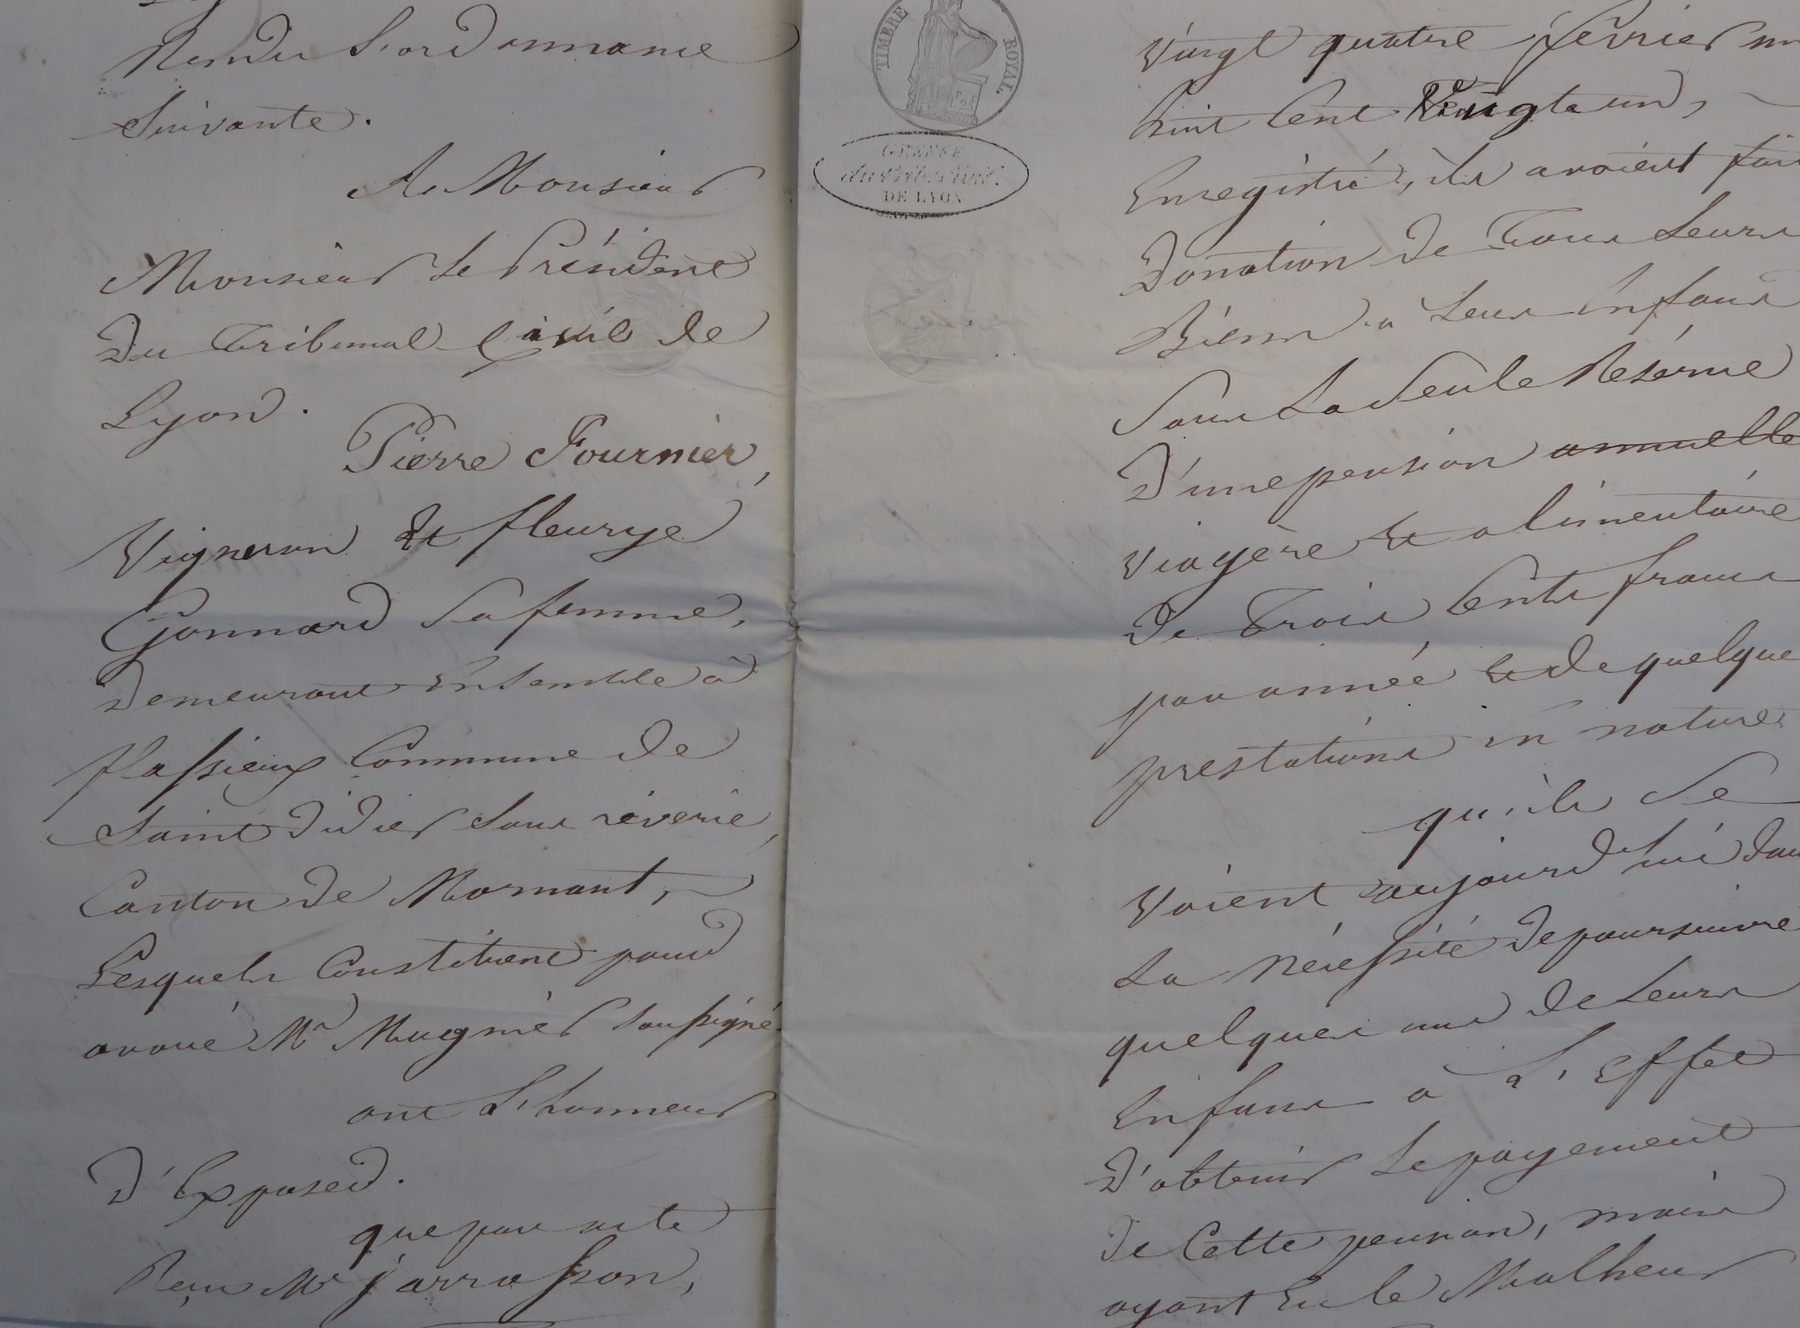 Rendu l'ordonnance
suivante.
A Monsieur
Monsieur le Président
Du Tribunal Civil de
Lyon.
Pierre Fournier,
Vigneron et fleurye
Gonnard sa femme,
Demeurant Ensemble à
flassieux Commune de
Saint Didier sous réverie,
Canton de Mornant,
Lesquels Constituent pour
avoué Me Mugnier soussigné
ont L'honneur
D'Exposer.
que par acte
Reçu Me jarrosson,
TIMBRE ROYAL
GREFFE
du Trib. Civil
DE LYON
Vingt quatre février
huit Cent Vingt un,
Enregistré, ils avoient fait
Donation de Tous Leurs
Biens a Leurs Enfans
Sous La Seule Réserve
D'une pension annuelle
viagère et alimentaire
De Trois Cents francs
par année et de quelque
prestations en nature
qu'ils se
Voient aujourd'hui dans
La nécessité de poursuivre
quelques uns de Leurs
Enfans à L'Effet
D'obtenir Le payement
De Cette pension, mais
ayant Eu le Malheur